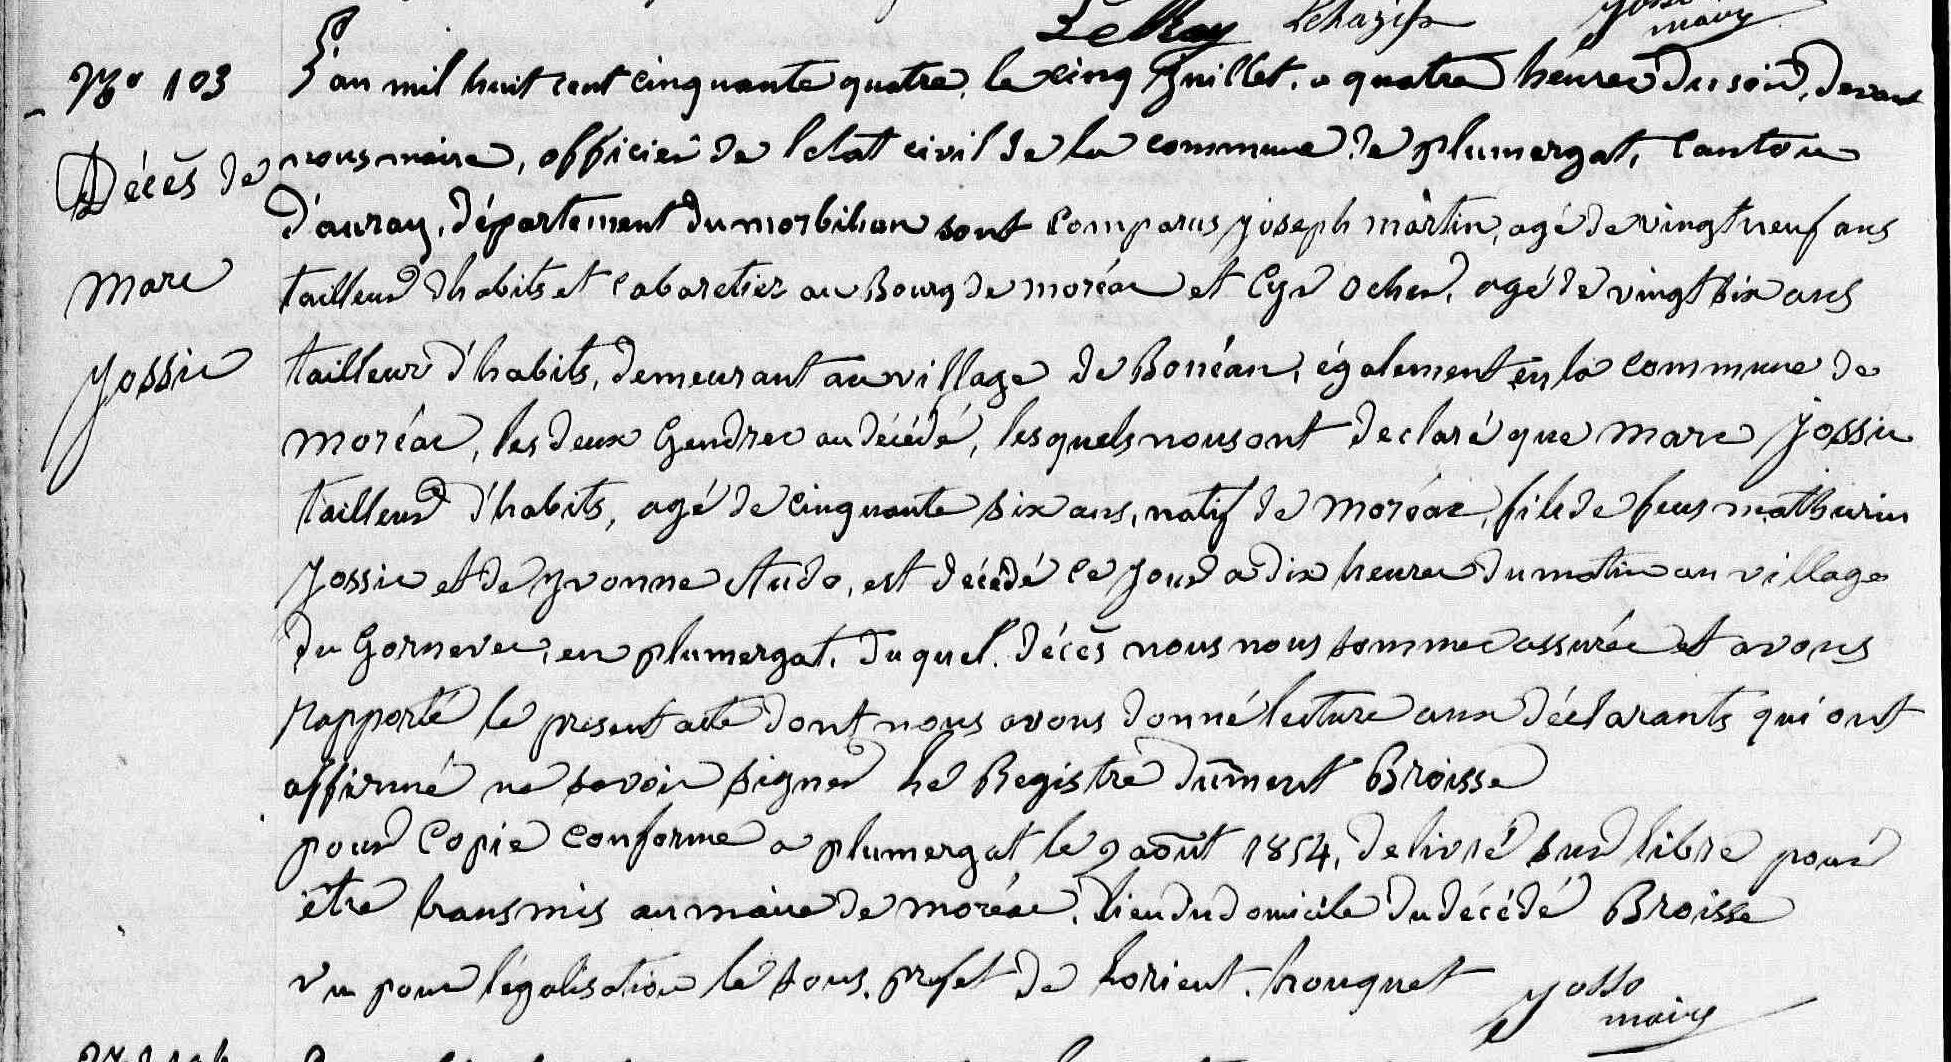 Le Ray Lehazif Josso
maire
No 103
Décès de
Marc
Jossic
L'an mil huit cent cinquante quatre, le cinq Juillet, a quatre heures du soir, devant
nous maire, officier de l'etat civil de la commune de plumergat, canton
d'auray, département du morbihan sont comparus joseph martin, agé de vingt neuf ans
tailleur d'habits et cabaretier au Bourg de moréac et Cyr ocher, agé de vingt six ans
tailleur d'habits, demeurant au village de Bonéan, également en la commune de
moréac, les deux Gendres au décédé, lesquels nous ont declaré que marc jossic
tailleur d'habits, agé de cinquante six ans, natif de moréac, fils de feus mathurin
Jossic et de yvonne Audo, est décédé ce jour a dix heures du matin au village
du Gornevec, en plumergat, duquel décès nous nous sommes assurés et avons
rapporté le present acte dont nous avons donné lecture aux déclarants qui ont
affirmé ne savoir signer le Registre dûment Broisse
pour copie conforme a plumergat le 9 août 1854, delivré sur libre pour
être transmis au maire de moréac, lieu du domicile du décédé Broisse
vu pour légalisation le sous, prefet de Lorient, houquet
Josso
maire